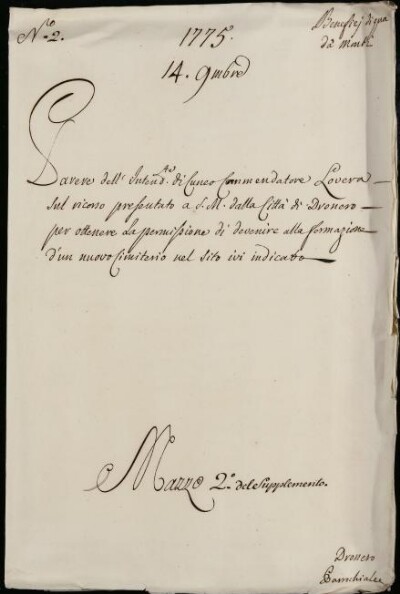 N.º 2.
1775.
Benefizj di qua
da Monti
14. 9mbre
Parere dell' Intend.te di Cuneo Commendatore Lovera
sul ricorso presentato a S. M. dalla Città di Dronero
per ottenere la permissione di devenire alla formazione
d'un nuovo Cimiterio nel sito ivi indicato
Mazzo 2.º del Supplemento.
Dronero
Parrochiale